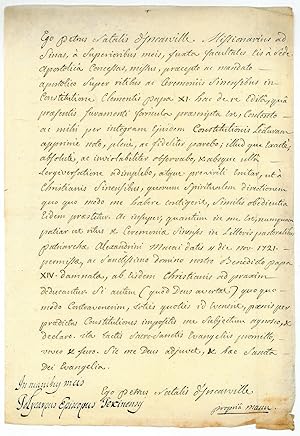 Ego petrus Natalis d'Incarville Missionarius ad
Sinas, à Superioribus meis, juxta facultates iis à Sede
Apostolica Concessas, missus, praecepto ac mandato
apostolico super ritibus ac Ceremoniis Sinensibus in
Constitutione Clementis papae XI. hac de re Edita, quâ
praesentis Juramenti formula praescripta est, Contento
ac mihi per integram ejusdem Constitutionis Lecturam
apprime noto, plene, ac fideliter parebo; illudque exacte,
absolute, ac inviolabiliter observabo, & absque ulla
tergiversatione adimplebo, atque pro virili enitar, ut à
Christianis Sinensibus, quorum Spiritualem Directionem
quoquo modo me habere contigerit, similis obedientia
eidem praestetur. Ac insuper, quantum in me est, nunquam
patiar ut ritus & Ceremoniae Sinenses in Litteris pastoralibus
patriarchae Alexandrini Macai datis 4 die nov. 1721.
permissae, ac Sanctissimo domino nostro Benedicto papa
XIV. damnatae, ab iisdem Christianis ad praxim
deducantur. Si autem (quod Deus avertat) quoquo
modo Contravenerim, toties quoties id evenerit, poenis per
praedictas Constitutiones impositis me Subjectum agnosco, &
declaro. Ita tactis Sacrosanctis Evangeliis promitto,
voveo & juro. Sic me Deus adjuvet, & haec Sancta
Dei evangelia.
In manibus meis
Ego petrus Natalis d'Incarville
Polycarpus Episcopus
propriâ manu